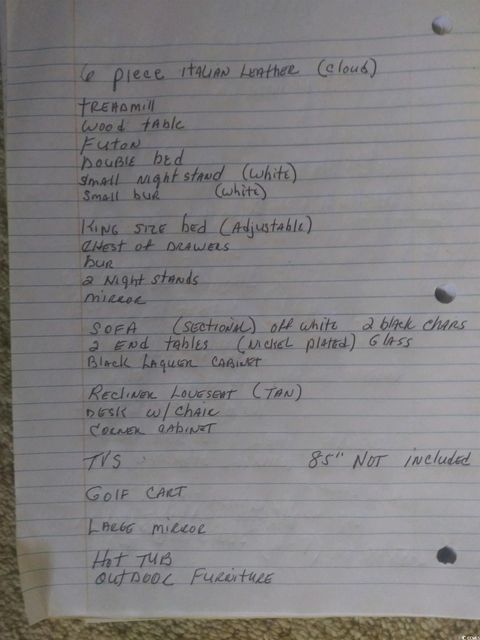 6 piece ITALIAN LEATHER (Cloud)
TREADMILL
Wood table
Futon
Double bed
Small Night Stand (White)
Small bur (White)
King Size bed (Adjustable)
Chest of Drawers
bur
2 Night Stands
Mirror
SOFA (Sectional) off white 2 black chars
2 End tables (Nickel plated) Glass
Black Laquer Cabinet
Recliner Loveseat (TAN)
Desk w/ Chair
Corner Cabinet
TVS 85" NOT included
GOLF CART
LARGE MIRROR
Hot TUB
OUTDOOR FURNITURE